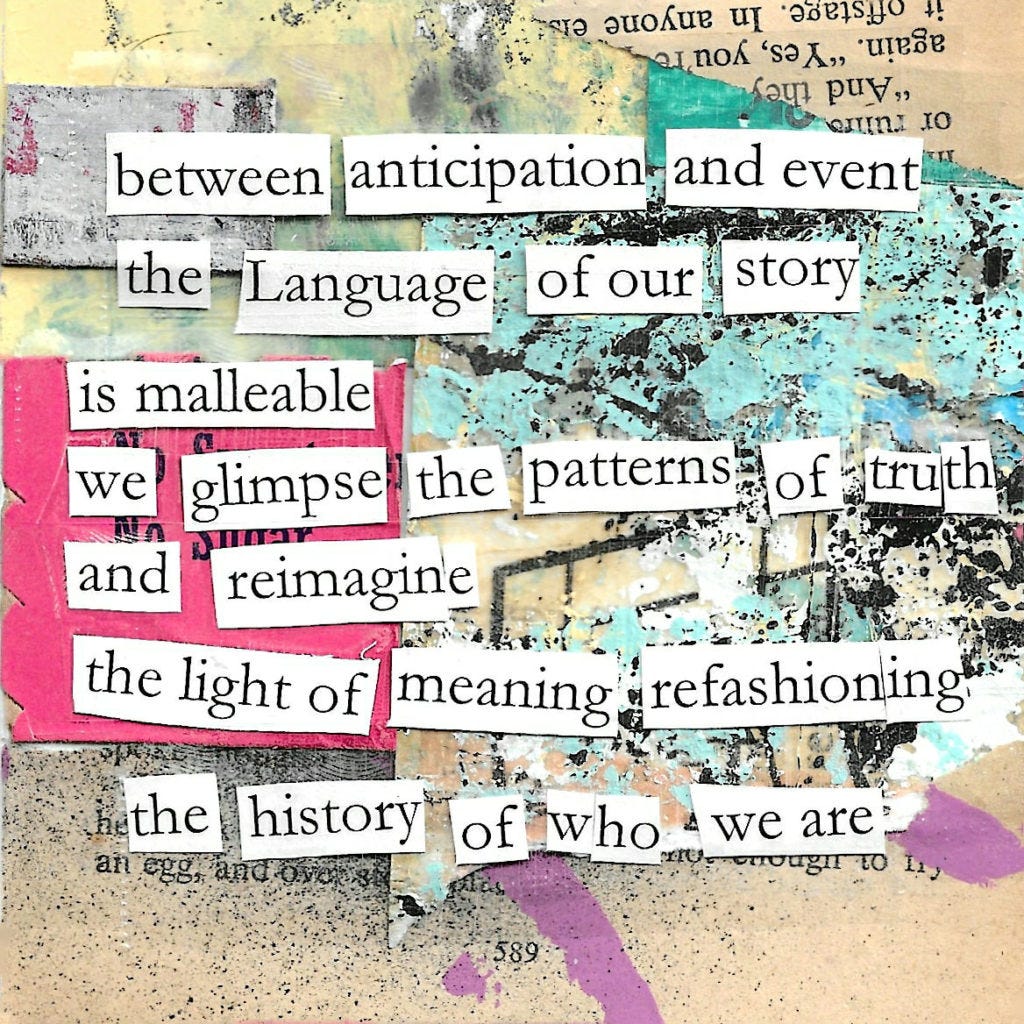 it offstage. In anyone els
again. "Yes, you're
"And they
or ruine
between anticipation and event
the Language of our story
is malleable
we glimpse the patterns of truth
No Sugar
and reimagine
the light of meaning refashioning
the history of who we are
an egg, and over
not enough to fly
589